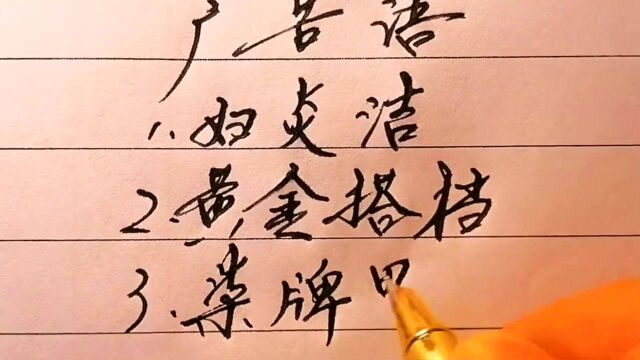 广告语
1、妇炎洁
2、黄金搭档
3、荣牌